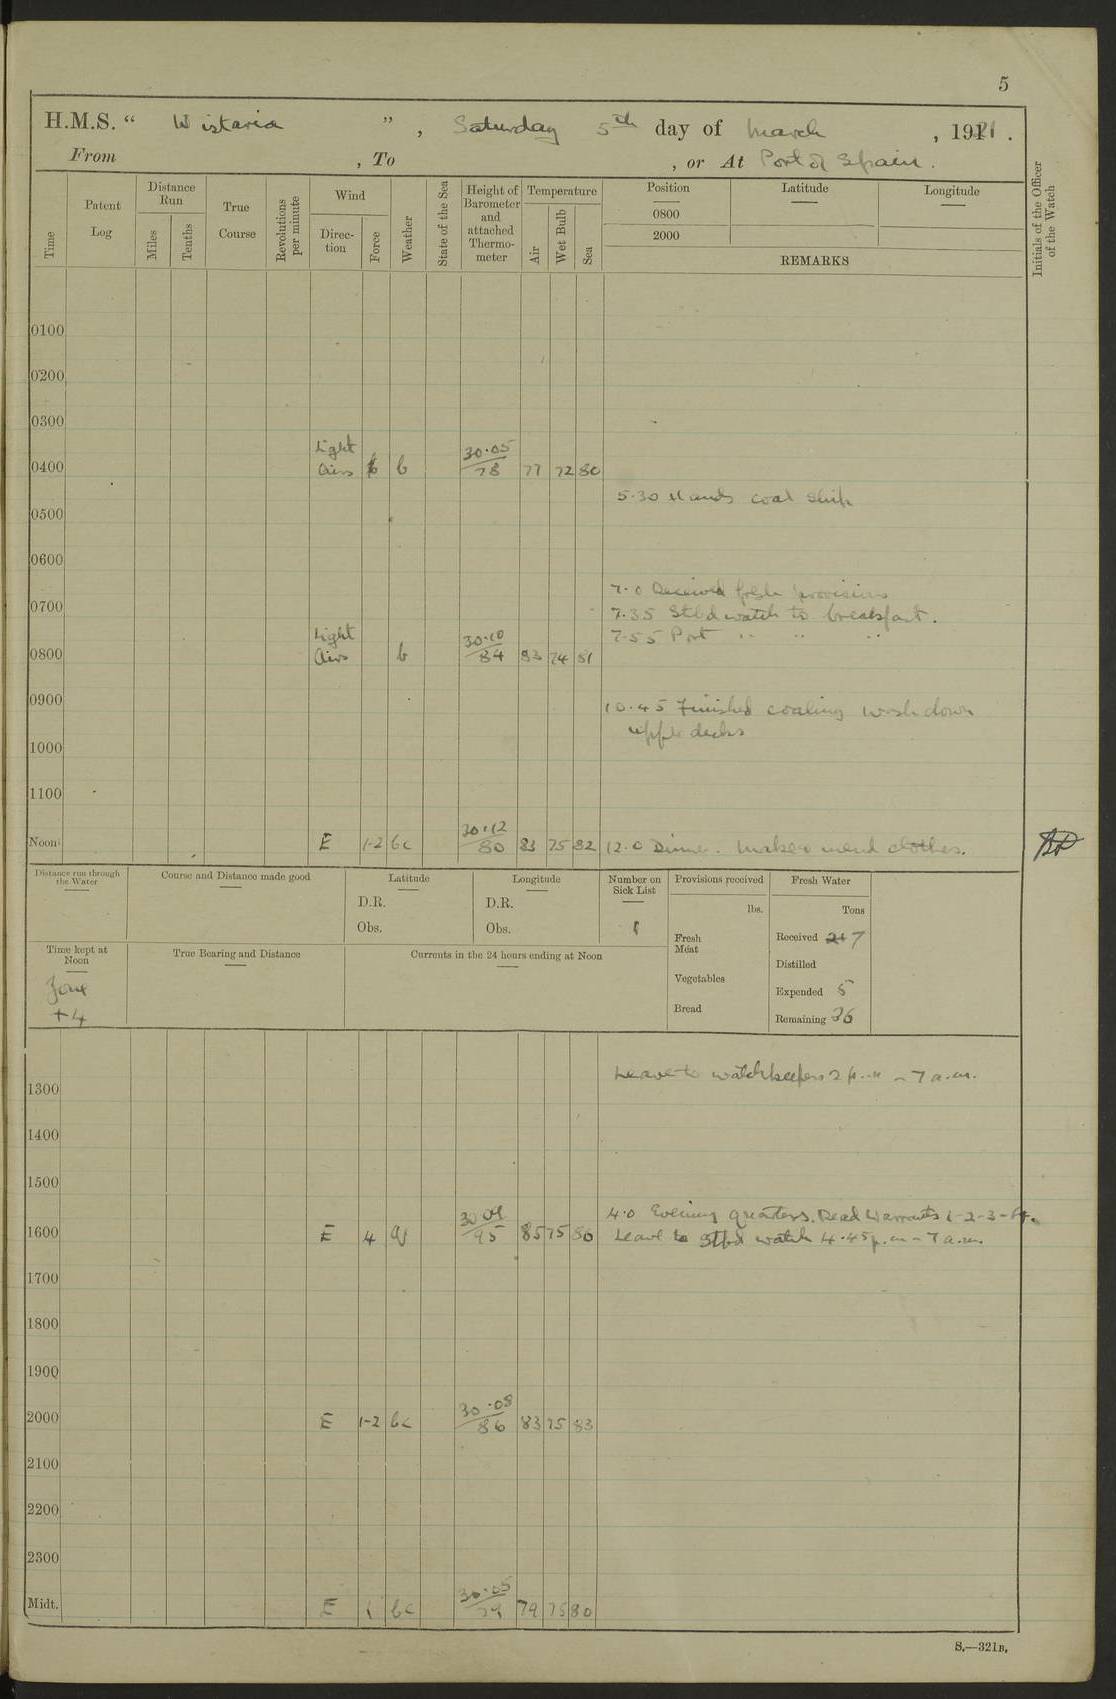 5
H.M.S. “ Wistaria ” , Saturday 5th day of March , 1921 .
From , To , or At Port of Spain .
Time
Patent Log
Distance Run
Miles
Tenths
True Course
Revolutions per minute
Wind
Direction
Force
Weather
State of the Sea
Height of Barometer and attached Thermometer
Temperature
Air
Wet Bulb
Sea
Position
Latitude
Longitude
0800
2000
REMARKS
Initials of the Officer of the Watch
0100
0200
0300
0400 Light Airs b 30.05 78 77 72 80
5.30 Hands coal ship
0500
0600
7.0 Received fresh provisions
0700
7.35 Stbd watch to breakfast.
7.55 Port " " "
0800 Light Airs b 30.10 84 83 74 81
0900
10.45 Finished coaling wash down
upper decks
1000
1100
Noon E 1-2 bc 30.12 80 83 75 82 12.0 Dinner. Make & mend clothes.
Distance run through the Water
Course and Distance made good
Latitude
D.R.
Obs.
Longitude
D.R.
Obs.
Number on Sick List
1
Provisions received
lbs.
Fresh Meat
Vegetables
Bread
Fresh Water
Tons
Received 7
Distilled
Expended 5
Remaining 36
Time kept at Noon
Zone
+4
True Bearing and Distance
Currents in the 24 hours ending at Noon
Leave to watchkeepers 2 p.m - 7 a.m.
1300
1400
1500
4.0 Evening quarters. Read Warrants 1-2-3-
1600 E 4 30 95 85 75 80 Leave to Stbd watch 4.45 p.m - 7 a.m.
1700
1800
1900
2000 E 1-2 bc 30.08 86 83 75 83
2100
2200
2300
Midt. E 1 bc 30.05 79 79 75 80
S.—321B.